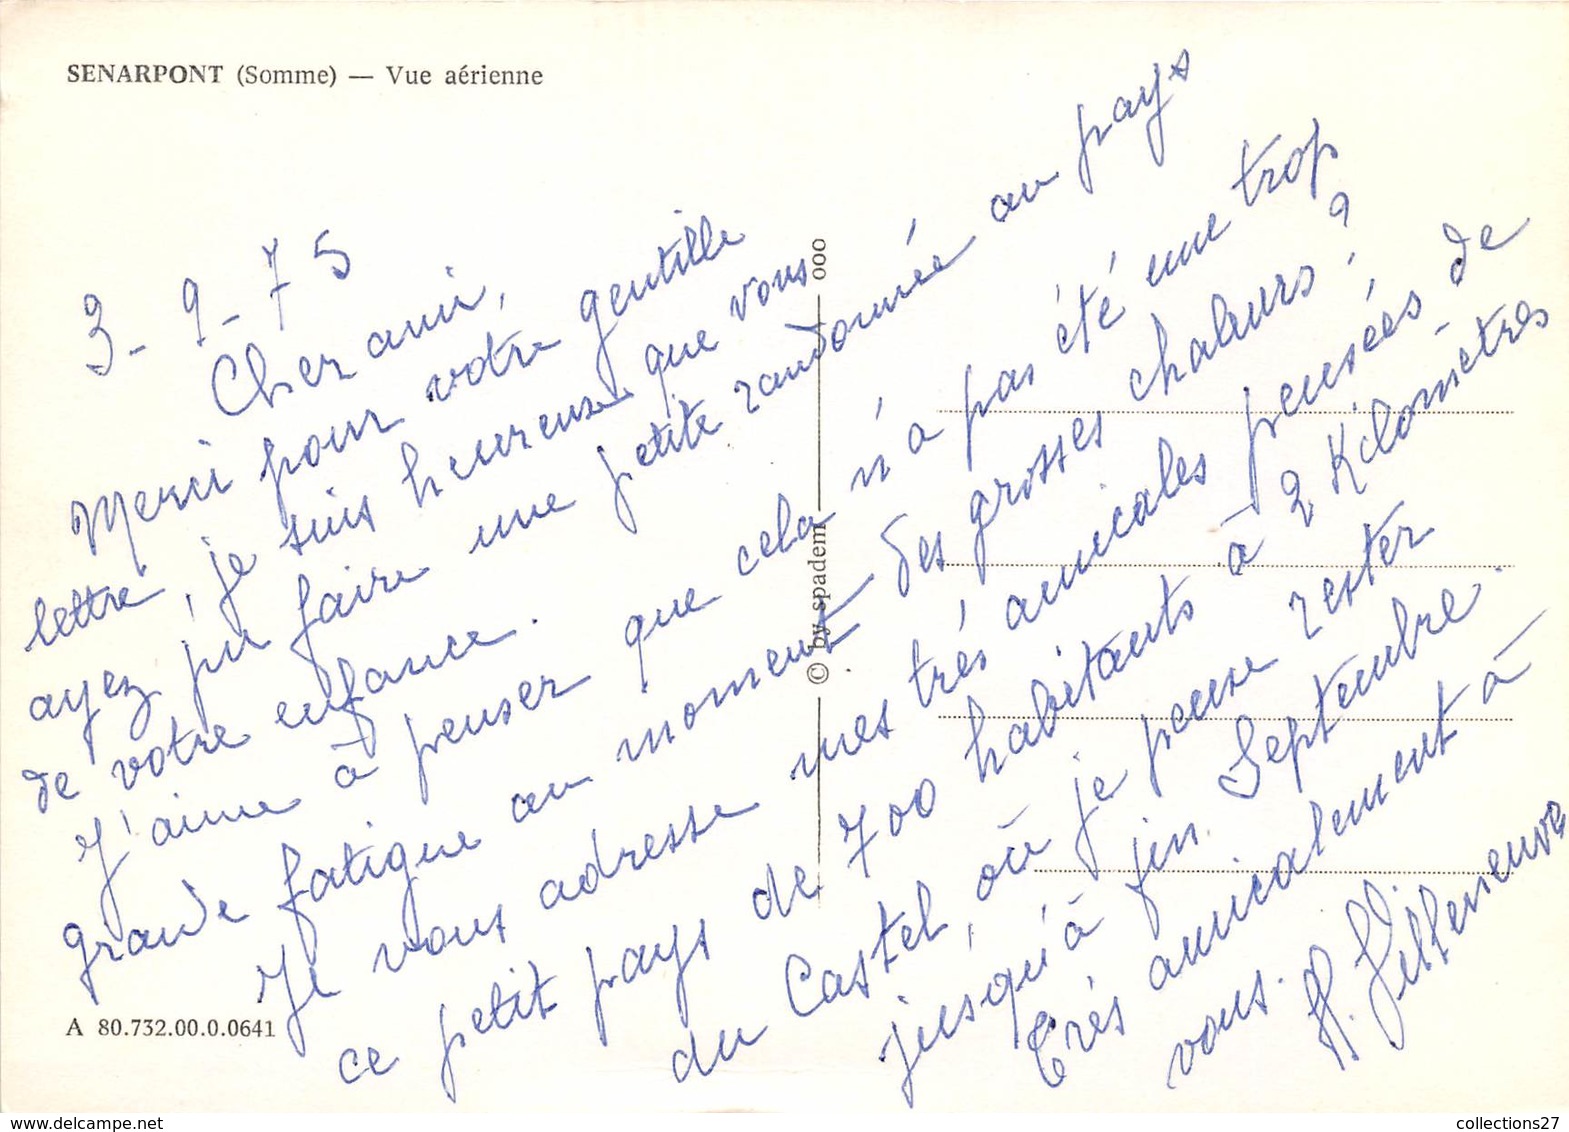 SENARPONT (Somme) — Vue aérienne
3-9-75
Cher ami,
Merci pour votre gentille
lettre, je suis heureuse que vous
ayez pu faire une petite randonnée au pays
de votre enfance.
J'aime à penser que cela n'a pas été une trop
grande fatigue au moment des grosses chaleurs ?
Je vous adresse mes très amicales pensées de
ce petit pays de 700 habitants à 2 Kilomètres
du Castel, où je pense rester
jusqu'à fin Septembre.
très amicalement à
vous.
© by spadem — ooo
A 80.732.00.0.0641
collections27